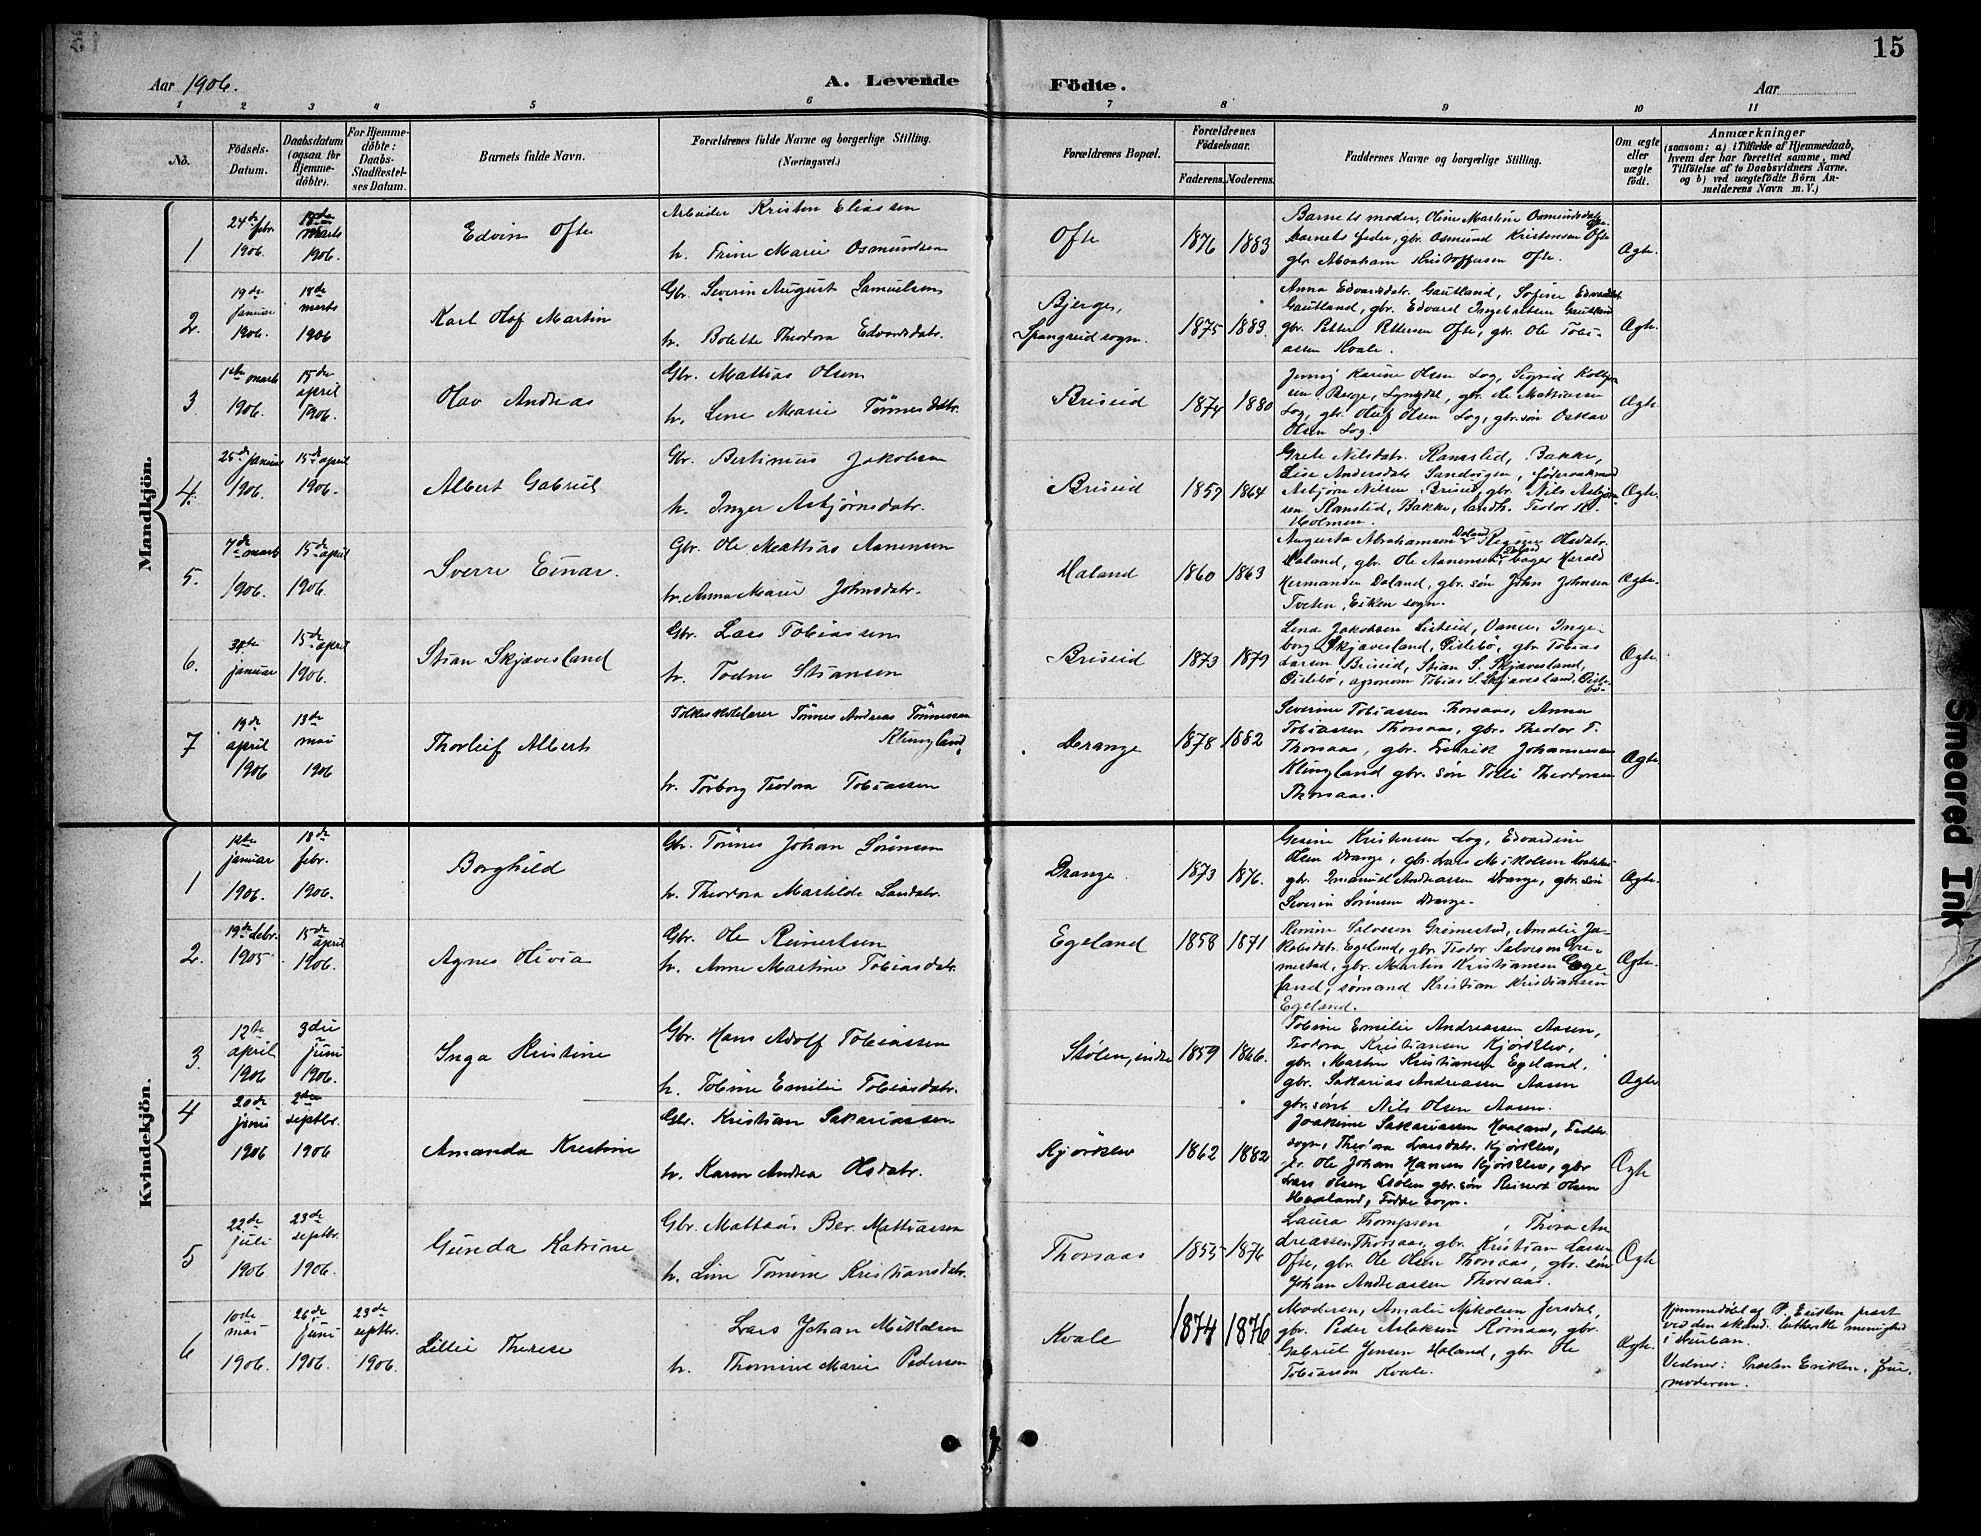 15
Aar 1906.
A. Levende
Födte.
Aar
1 2 3 4 5 6 7 8 9 10 11
No.
Födsels-Datum.
Daabsdatum (ogsaa for Hjemme-döbte).
For Hjemme-döbte: Daabs-Stadfæstel-ses Datum.
Barnets fulde Navn.
Forældrenes fulde Navne og borgerlige Stilling. (Næringsvei.)
Forældrenes Bopæl.
Forældrenes Födselsaar.
Faderens. Moderens.
Faddernes Navne og borgerlige Stilling.
Om ægte eller uægte født.
Anmærkninger
(saasom: a) i Tilfælde af Hjemmedaab,
hvem der har forrettet samme, med
Tilföielse af to Daabsvidners Navne,
og b) ved uægtefödte Börn An-
melderens Navn m. V.)
Mandkjön.
1
24de febr. 1906.
18de marts 1906.
Edvin Ofte
Arbeider Kristen Eliassen
h. Trine Marie Osmundsen
Ofte
1876 1883
Barnets moder, Oline Martine Osmundsdatr. Ofte
Barnets fader, gbr. Osmund Kristensen Ofte
gbr. Abraham Kristoffersen Ofte.
Ægte.
2.
19de januar 1906.
18de marts 1906
Karl Olaf Martin
Gbr. Severin August Samuelsen
h. Bolette Theodora Edvardsdatr.
Bjerge,
Spangreid sogn.
1875 1883.
Anna Edvardsdatr. Gautland, Sofine Edvardsdatr.
Gautland, gbr. Edvard Ingebretsen Gautland
gbr. Petter Pettersen Ofte, gbr. Ole Tobi-
assen Kvale.
Ægte.
3
1ste marts 1906.
15de april 1906.
Olav Andreas
Gbr. Mattias Olsen
h. Lene Marie Tønnesdatr.
Briseid
1874 1880
Jenny Karine Olsen Log, Sigrid
Berge, Lyngdal, gbr. Ole Mathiasen
Log, gbr. Oluf Olsen Log, gbr. søn Oskar
Olsen Log.
Ægte.
4.
25de januar 1906.
15de april 1906.
Albert Gabriel
Gbr. Bertinius Jakobsen
h. Inger Asbjørnsdatr.
Briseid
1859 1864
Grete Nilsdatr. Ramslid, Bakke,
Lise Andersdatr. Sandvigen,
Asbjørn Nilsen Briseid, gbr. Nils Asbjørn-
sen Ramslid, Bakke, landh. Teodor
Holmen.
Ægte.
5.
7de marts 1906.
15de april 1906.
Sverre Einar.
Gbr. Ole Mattias Aanensen
h. Anna Marie Johnsdatr.
Haland
1860 1863
Augusta Abrahamsen Doland, Regine Olsdatr.
Haland, gbr. Ole Aanensen Doland, bager Harald
Hermansen Doland, gbr. søn John Johnsen
Tveten, Eiken sogn.
Ægte.
6.
30te januar 1906.
15de april 1906.
Stian Skjævesland
Gbr. Lars Tobiassen
h. Todne Stiansen
Briseid
1873 1879
Lena Jakobsen Listeid, Vanse, Inge-
borg Skjævesland, Øislebø, gbr. Tobias
Larsen Briseid, Stian S. Skjævesland,
Øislebø, agronom Tobias S. Skjævesland, Øisle-
bø.
Ægte.
7
19de april 1906
13de mai 1906
Thorleif Albert
Folkeskolelærer Tønnes Andreas Tønnessen
Klungland,
h. Torborg Teodora Tobiassen
Drange
1878 1882
Severine Tobiassen Thorsaas, Anna
Tobiassen Thorsaas, gbr. Theodor T.
Thorsaas, gbr. Fredrik Johannessen
Klungland gbr. søn Tolli Theodorsen
Thorsaas.
Ægte
Kvindekjön.
1
12te januar 1906.
18de febr. 1906.
Borghild
Gbr. Tønnes Johan Sørensen
h. Theodora Martilde Larsdatr.
Drange.
1873 1876.
Gesine Kristensen Log, Edvardine
Olsen Drange, gbr. Lars Mikalsen
gbr. Imanuel Andreassen Drange, gbr. søn
Severin Sørensen Drange.
Ægte.
2.
19de debr. 1905
15de april 1906.
Agnes Olivia
Gbr. Ole Reinertsen
h. Anne Martine Tobiasdatr.
Egeland
1858 1871
Salvesen Grimestad, Amalie Ja-
kobsdatr. Egeland, gbr. Teodor Salvesen Gri-
mestad, gbr. Martin Kristiansen Ege-
land, sømand Kristian Kristiansen
Egeland.
Ægte.
3.
12te april 1906
3die juni 1906.
Inga Kristine
Gbr. Hans Adolf Tobiassen
h. Tobine Emilie Tobiasdatr.
Stølen, indre
1859 1866.
Tobine Emilie Andreassen Aasen,
Teodora Kristiansen Kjørklev,
gbr. Martin Kristiansen Egeland,
gbr. Sakarias Andreassen Aasen
gbr. søn Nils Olsen Aasen.
Ægte
4
20de juni 1906
2den septbr. 1906
Amanda Kristine
Gbr. Kristian Sakariassen
h. Karen Andrea Olsdatr.
Kjørklev
1862 1882
Joakime Sakariassen Haaland, Fedde
sogn, Theodora Larsdatr. Kjørklev,
gbr. Ole Johan Hansen Kjørklev, gbr
Lars Olsen Stølen gbr. søn Reinert Olsen
Haaland, Fedde sogn.
Ægte
5
22de juli 1906
23de septbr. 1906.
Gunda Katrine
Gbr. Mattias Ber. Mattiassen
h. Line Tomine Kristiansdatr.
Thorsaas
1855 1876
Laura Thompsen , Thora An
dreassen Thorsaas, gbr. Kristian Larsen
Ofte, gbr. Ole Olsen Thorsaas, gbr. søn
Johan Andreassen Thorsaas.
Ægte
6
10de mai 1906.
26de juni 1906.
23de septbr. 1906.
Lillie Therese
Lars Johan Mikalsen
h. Thomine Marie Pedersen
Kvale
1874 1876
Moderen, Amalie Mikalsen Jersdal,
gbr. Peder Aslaksen Rømaas, gbr.
Gabriel Jensen Haland, gbr Ole
Tobiassen Kvale.
Ægte.
Hjemmedøbt af P. Eriksen præst
ved den skand. lutherske menighed
i
Vidner: Præsten Eriksen, frue,
moderen.
Smeared Ink